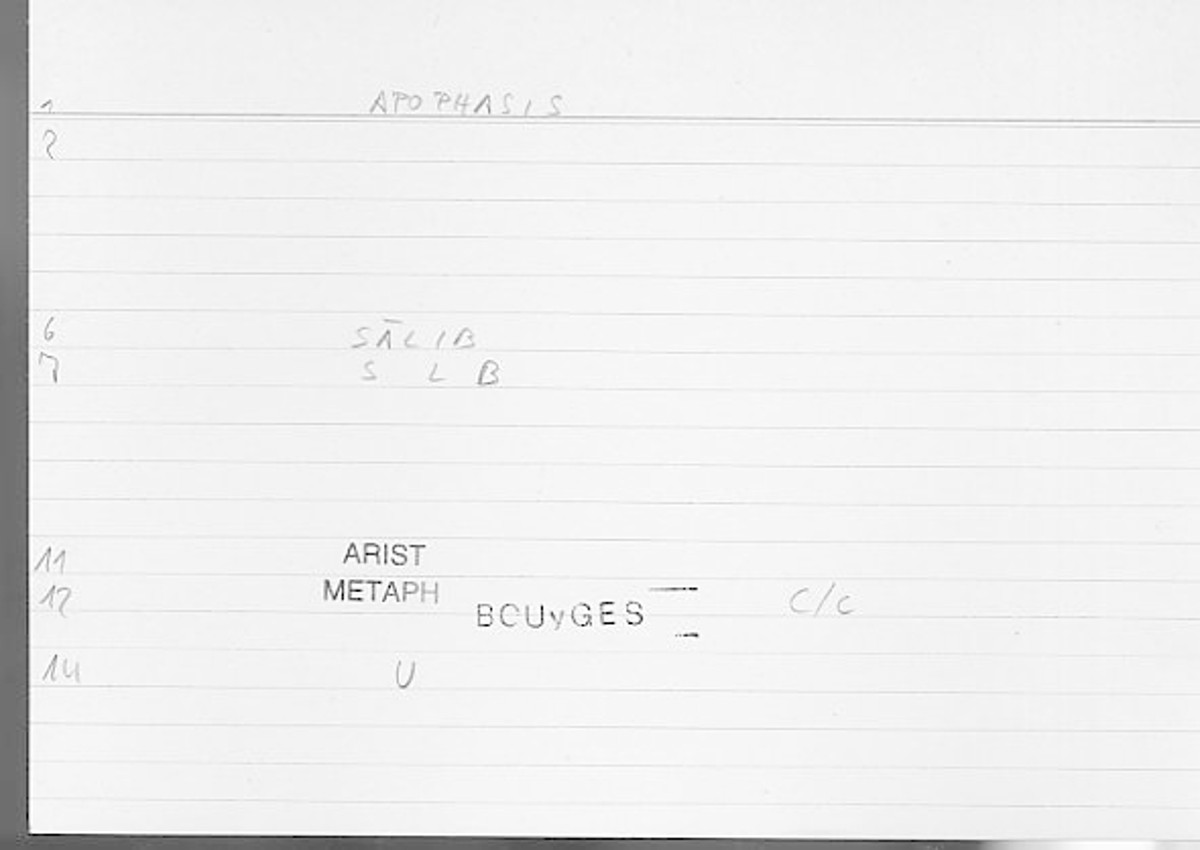 1 APOPHASIS
2
6 SĀLIB
7 S L B
11 ARIST
12 METAPH
BOUyGES C/C
14 U